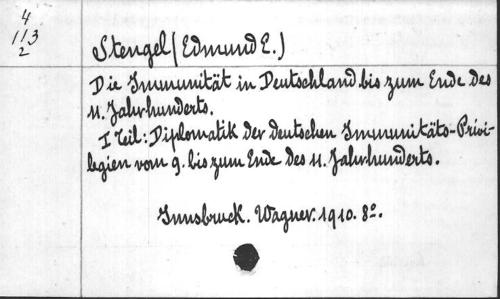 4
113
2
Stengel (Edmund E.)
Die Immunität in Deutschland bis zum Ende des
11. Jahrhunderts.
I Teil: Diplomatik der deutschen Immunitäts-Privi-
legien vom 9. bis zum Ende des 11. Jahrhunderts.
Innsbruck. Wagner. 1910. 8º.